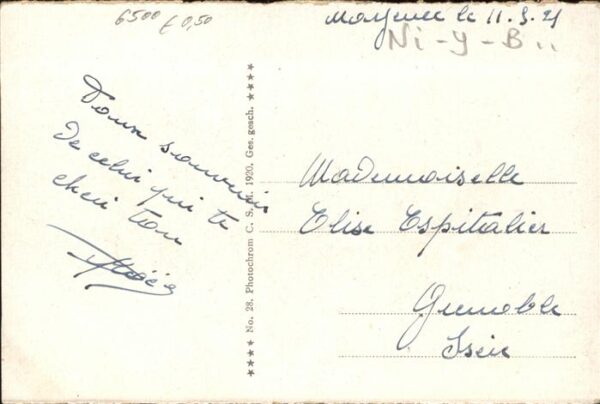 6500 £ 0,50
Mayence le 11.3.21
Ni-y-B..
Doux souvenir
de celui qui te
cheri ton
**** No. 28. Photochrom C. S. M. 1920. Ges. gesch. ****
Mademoiselle
Elise Espitalier
Grenoble
Isère